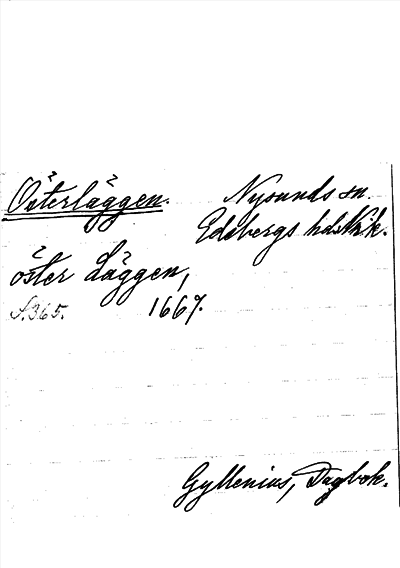 Österläggen.
Nysunds sn.
Edsbergs hd. Nrk.
öster Läggen,
S.365. 1667.
Gyllenius, Dagbok.